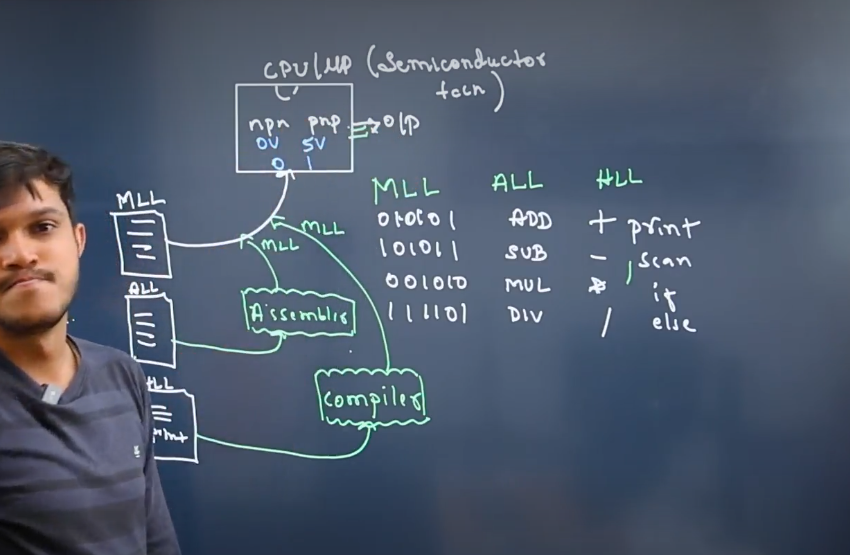 CPU/MP (Semiconductor
tech)
npn pnp
0V 5V
0 1
O/P
MLL
MLL
MLL
ALL
Assembler
HLL
print
Compiler
MLL ALL HLL
010101 ADD + print
101011 SUB - scan
001010 MUL * if
111101 DIV / else